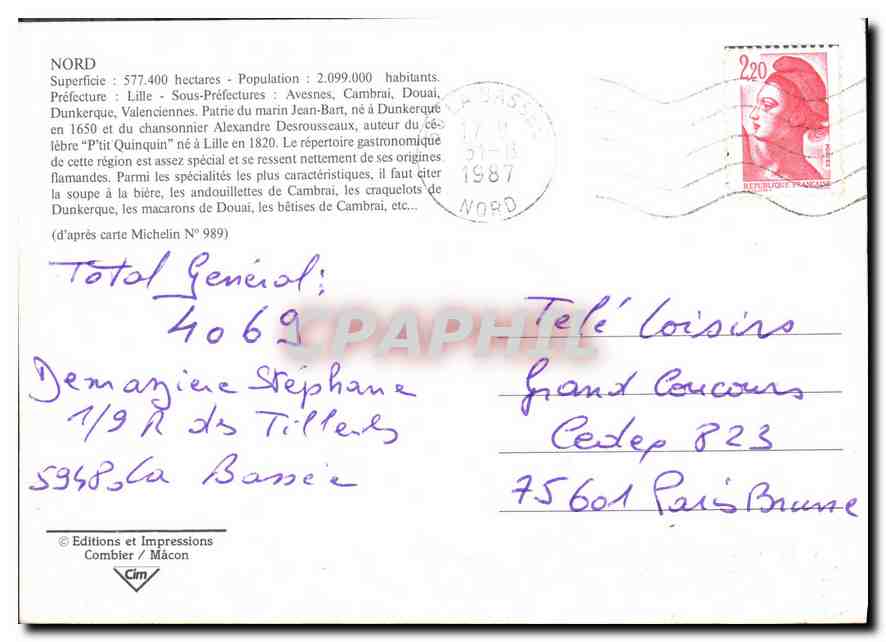 NORD
Superficie : 577.400 hectares - Population : 2.099.000 habitants.
Préfecture : Lille - Sous-Préfectures : Avesnes, Cambrai, Douai,
Dunkerque, Valenciennes. Patrie du marin Jean-Bart, né à Dunkerque
en 1650 et du chansonnier Alexandre Desrousseaux, auteur du cé-
lèbre “P'tit Quinquin” né à Lille en 1820. Le répertoire gastronomique
de cette région est assez spécial et se ressent nettement de ses origines
flamandes. Parmi les spécialités les plus caractéristiques, il faut citer
la soupe à la bière, les andouillettes de Cambrai, les craquelots de
Dunkerque, les macarons de Douai, les bêtises de Cambrai, etc...
(d'après carte Michelin N° 989)
LA BASSEE
1987
NORD
2,20
REPUBLIQUE FRANÇAISE
Total Général :
4069
Demazière Stéphane
1/9 R des Tilleuls
59480 La Bassée
CPAPHIL
Télé Loisirs
Grand Concours
Cedex 823
75601 Paris Brune
© Editions et Impressions
Combier / Mâcon
Cim